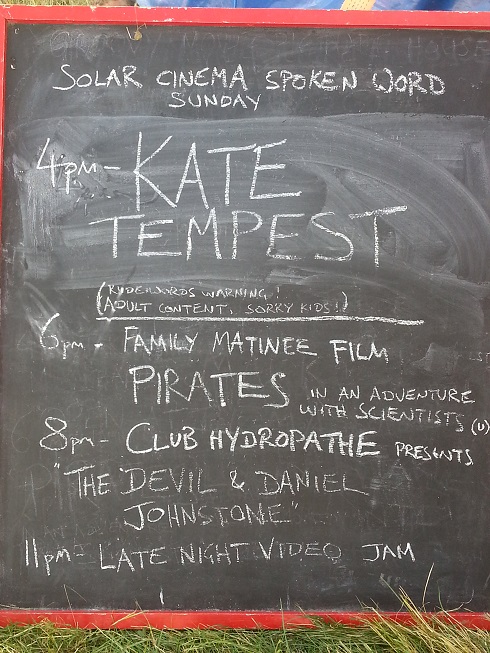 SOLAR CINEMA SPOKEN WORD
SUNDAY
4pm - KATE
TEMPEST
(RUDE WORDS WARNING!
ADULT CONTENT, SORRY KIDS!)
6pm - FAMILY MATINEE FILM
PIRATES IN AN ADVENTURE
WITH SCIENTISTS (U)
8pm - CLUB HYDROPATHE PRESENTS
"THE DEVIL & DANIEL
JOHNSTONE"
11pm - LATE NIGHT VIDEO JAM